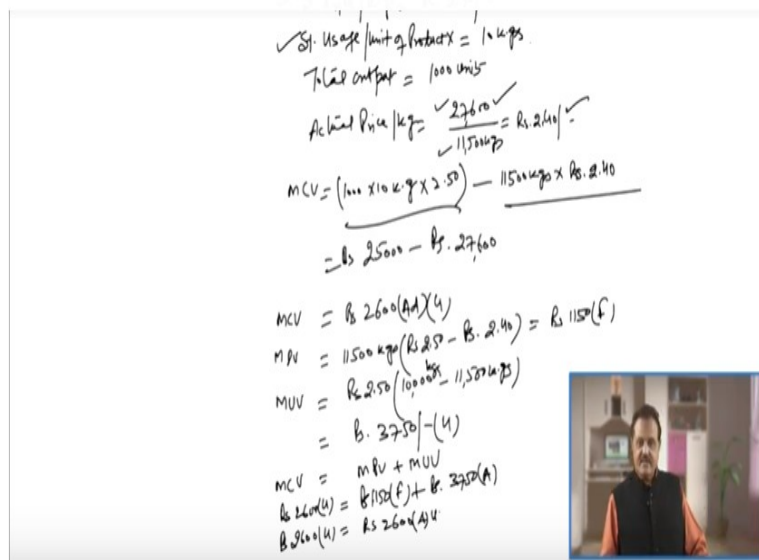 ✓St. Usage/unit of Product X = 10 kgs.
Total output = 1000 units
Actual Price/kg = ✓27,600✓ / ✓11,500kgs = Rs. 2.40/- ✓
MCV = (1000 x 10 k.g x 2.50) - 11500 kgs x Rs. 2.40
= Rs 25000 - Rs. 27,600
MCV = Rs 2600 (Ad) (U)
MPV = 11500 kgs (Rs 2.50 - Rs. 2.40) = Rs 1150 (f)
MUV = Rs 2.50 (10,000 kgs - 11,500 k.gs)
= Rs. 3750/- (U)
MCV = MPV + MUV
Rs 2600 (U) = Rs 1150 (f) + Rs. 3750 (A)
Rs 2600 (U) = Rs 2600 (A) U